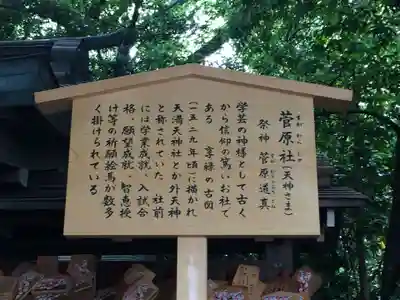 菅原社（天神さま）
すがわらしゃ
祭神　菅原道真
すがわらのみちざね
学芸の神様として古く
から信仰の篤いお社で
ある　享禄の古図
（一五二九年頃）に描かれ
天満天神社とか外天神
と称されていた　社前
には学業成就、入試合
格、願望成就、智恵授
け等の祈願絵馬が数多
く掛けられている